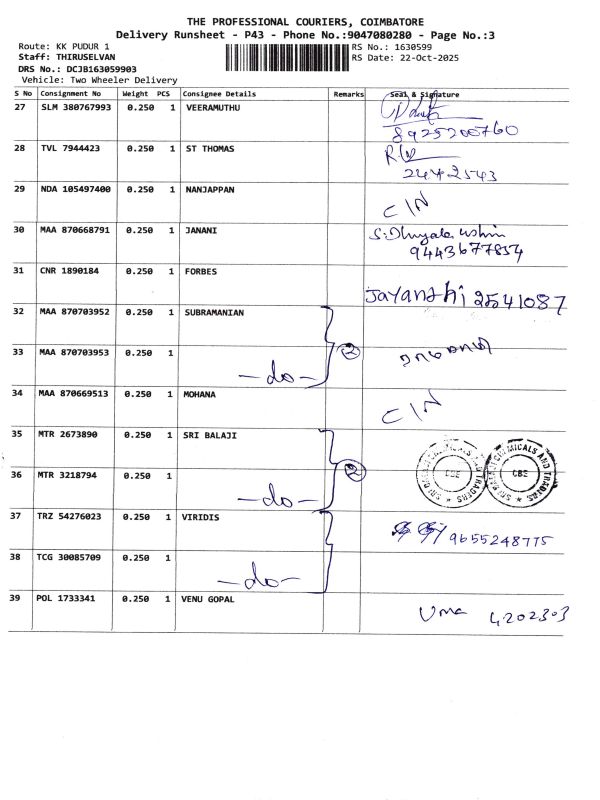 THE PROFESSIONAL COURIERS, COIMBATORE
Delivery Runsheet - P43 - Phone No.:9047080280 - Page No.:3
Route: KK PUDUR 1
RS No.: 1630599
Staff: THIRUSELVAN
RS Date: 22-Oct-2025
DRS No.: DCJB163059903
Vehicle: Two Wheeler Delivery
S No Consignment No Weight PCS Consignee Details Remarks Seal & Signature
27 SLM 380767993 0.250 1 VEERAMUTHU
8925200760
28 TVL 7944423 0.250 1 ST THOMAS
2442543
29 NDA 105497400 0.250 1 NANJAPPAN
CIN
30 MAA 870668791 0.250 1 JANANI
9443677854
31 CNR 1890184 0.250 1 FORBES
Jayanthi 2541087
32 MAA 870703952 0.250 1 SUBRAMANIAN
33 MAA 870703953 0.250 1
-do- 2
34 MAA 870669513 0.250 1 MOHANA
CIN
35 MTR 2673890 0.250 1 SRI BALAJI
36 MTR 3218794 0.250 1
-do- 2
SRI BALAJI CHEMICALS AND TRADERS CBE
SRI BALAJI CHEMICALS AND TRADERS CBE
37 TRZ 54276023 0.250 1 VIRIDIS
9655248775
38 TCG 30085709 0.250 1
-do-
39 POL 1733341 0.250 1 VENU GOPAL
Uma 4202303